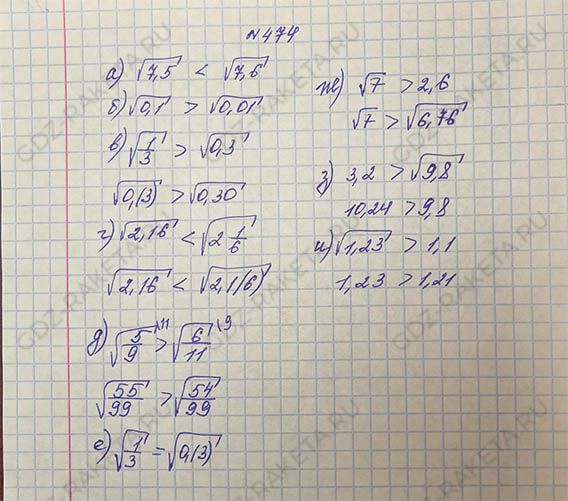 №474
а) √7,5 < √7,6
б) √0,1 > √0,01
в) √1/3 > √0,3
√0,(3) > √0,30
г) √2,16 < √2 1/6
√2,16 < √2,1(6)
д) √5/9 \11 > √6/11 \9
√55/99 > √54/99
е) √1/3 = √0,(3)
ж) √7 > 2,6
√7 > √6,76
з) 3,2 > √9,8
10,24 > 9,8
и) √1,23 > 1,1
1,23 > 1,21
GDZ-RAKETA.RU